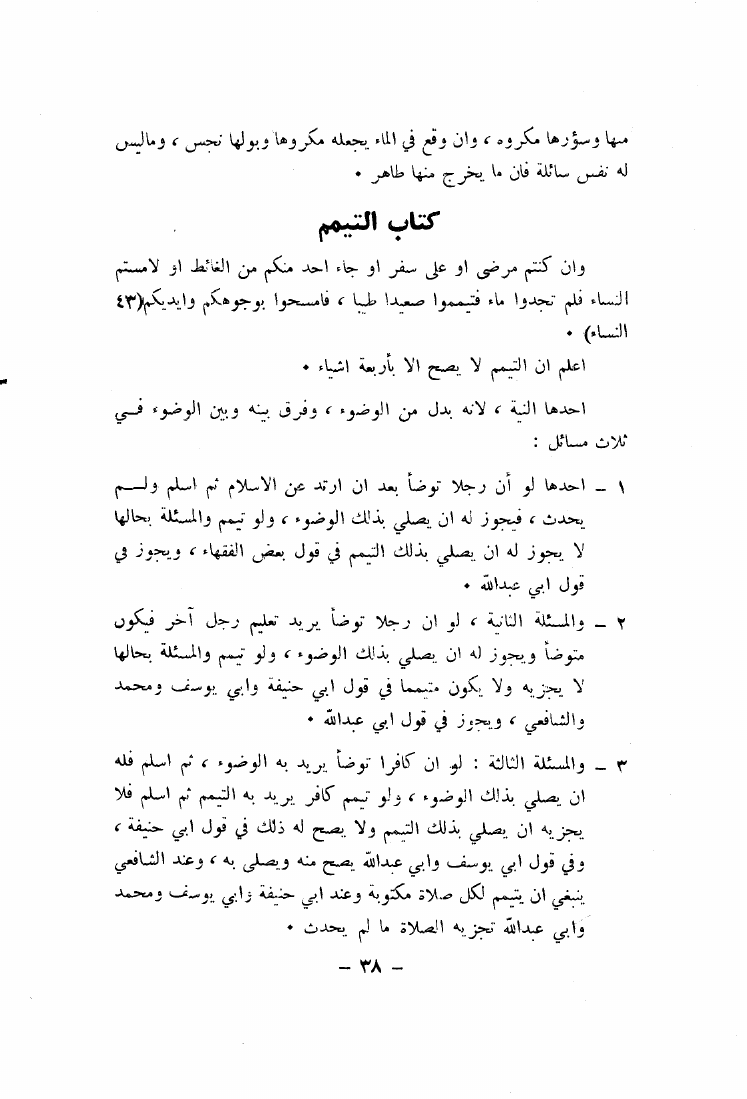 منها وسؤرها مكروه ، وان وقع في الماء يجعله مكروها وبولها نجس ، وماليس
له نفس سائلة فان ما يخرج منها طاهر ٠
كتاب التيمم
وان كنتم مرضى او على سفر او جاء احد منكم من الغائط او لامستم
النساء فلم تجدوا ماء فتيمموا صعيدا طيبا ، فامسحوا بوجوهكم وايديكم(٤٣
النساء) ٠
اعلم ان التيمم لا يصح الا بأربعة اشياء ٠
احدها النية ، لانه بدل من الوضوء ، وفرق بينه وبين الوضوء فــي
ثلاث مسائل :
١ – احدها لو أن رجلا توضأ بعد ان ارتد عن الاسلام ثم اسلم ولــم
يحدث ، فيجوز له ان يصلي بذلك الوضوء ، ولو تيمم والمسئلة بحالها
لا يجوز له ان يصلي بذلك التيمم في قول بعض الفقهاء ، ويجوز في
قول ابي عبدالله ٠
٢ – والمسئلة الثانية ، لو ان رجلا توضأ يريد تعليم رجل آخر فيكون
متوضأ ويجوز له ان يصلي بذلك الوضوء ، ولو تيمم والمسئلة بحالها
لا يجزيه ولا يكون متيمما في قول ابي حنيفة وابي يوسف ومحمد
والشافعي ، ويجوز في قول ابي عبدالله ٠
٣ – والمسئلة الثالثة : لو ان كافرا توضأ يريد به الوضوء ، ثم اسلم فله
ان يصلي بذلك الوضوء ، ولو تيمم كافر يريد به التيمم ثم اسلم فلا
يجزيه ان يصلي بذلك التيمم ولا يصح له ذلك في قول ابي حنيفة ،
وفي قول ابي يوسف وابي عبدالله يصح منه ويصلى به ، وعند الشافعي
ينبغي ان يتيمم لكل صلاة مكتوبة وعند ابي حنيفة وابي يوسف ومحمد
وابي عبدالله تجزيه الصلاة ما لم يحدث ٠
– ٣٨ –